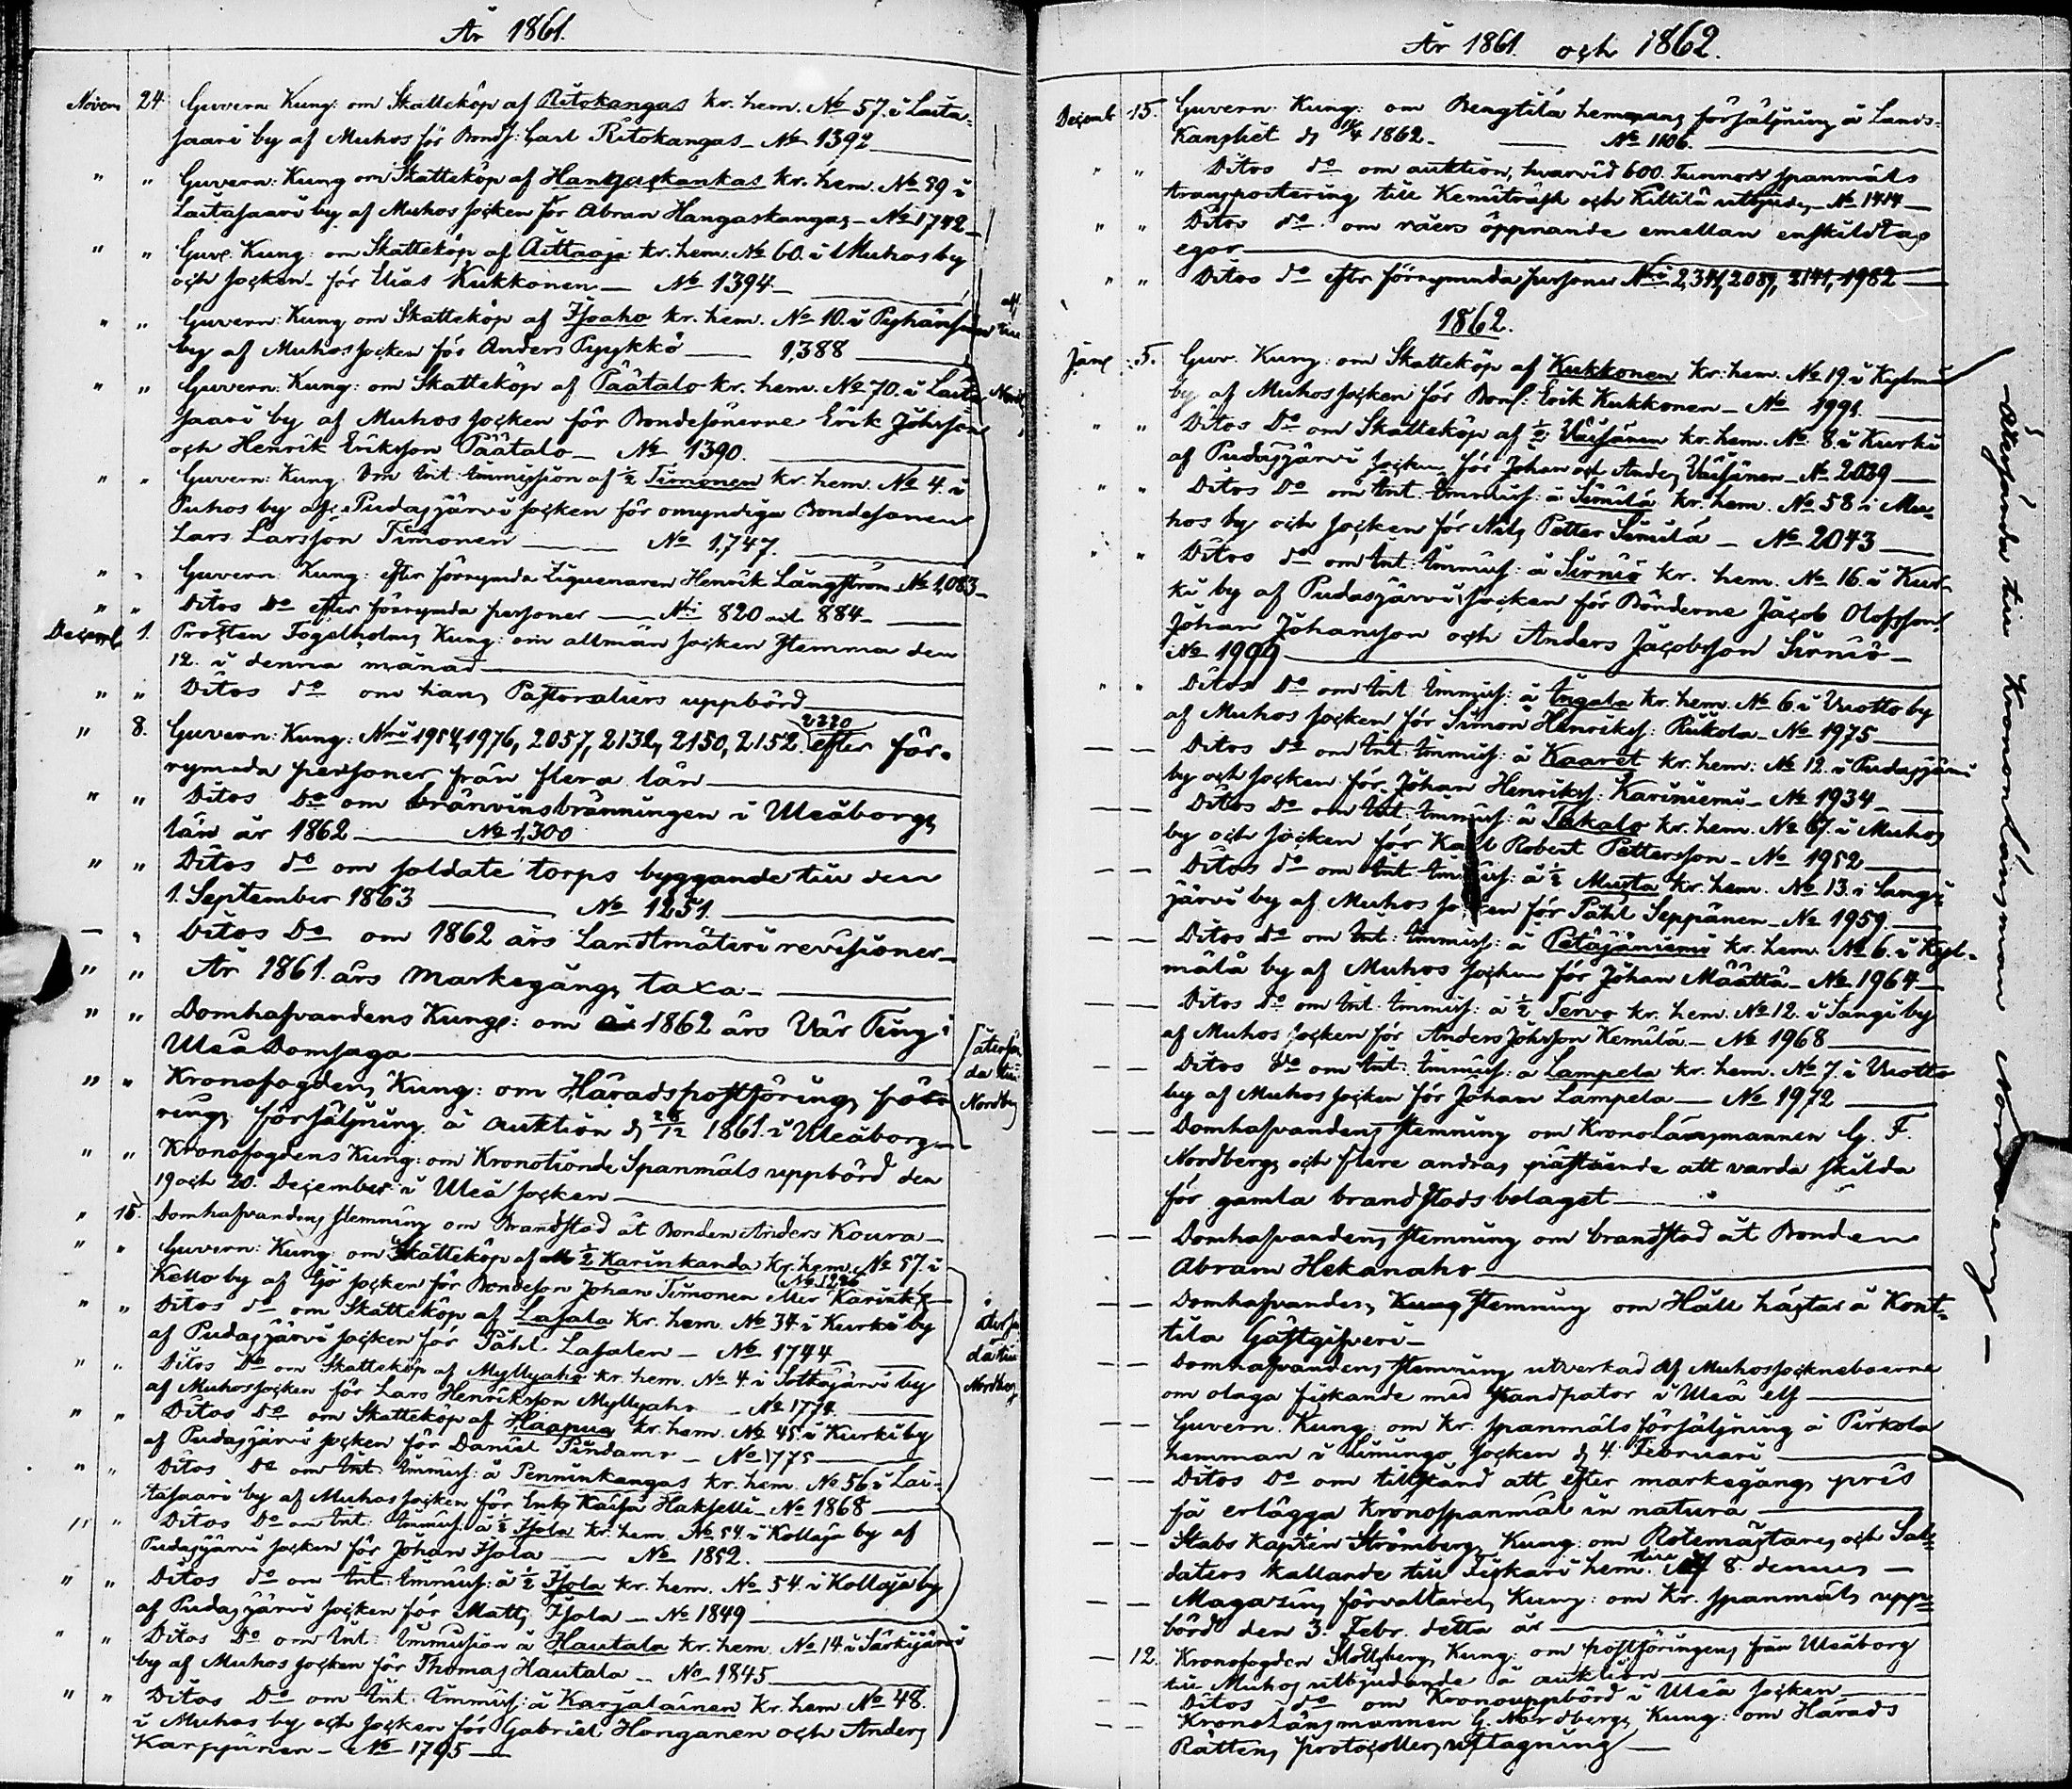 År 1861.
Novem 24. Guvern. Kung: om Skatteköp af Ritokangas kr. hem. No 57. i Laita-
saari by af Muhos för Bonds: Carl Ritokangas - No 1392
" " Guvern: Kung om Skatteköp af Hangaskankas kr. hem. No 59 i
Laitasaari by af Muhos socken för Abran Hangaskangas - No 1742
" " Guve Kung: om Skatteköp af Aittaoja kr. hem. No 60. i Muhos by
och socken - för Elias Kukkonen - No 1394 -
" " Guvern: Kung om Skatteköp af Isoaho kr. hem. No 10. i Pyhänsivu
by af Muhos socken för Anders Pyykkö - 1,388
" " Guvern: Kung: om Skatteköp af Päätalo kr. hem. No 70. i Laita
saari by af Muhos socken för Bondesönerne Erik Johnson
och Henrik Eriksson Päätalo - No 1390.
" " Guvern: Kung. Om Int. Immission af ½ Timonen kr. hem. No 4. i
Puhos by af Pudasjärvi socken för omyndiga Bondesonen
Lars Larsson Timonen - No 1,747.
" " Guvern: Kung: efter förrymda Ziguenaren Henrik Långström No 1,083 -
" " Ditos Do efter förrymda personer - Nri 820 och 884 -
Decemb 1. Prosten Fogelholms Kung: om allmän socken stemma den
12. i denna månad
" " Ditos do om hans Pastoraliers uppbörd
" 8. Guvern: Kung: Nri 1954, 1976, 2057, 2132, 2150, 2152. 2320 efter för-
rymda personer från flera län
" " Ditos Do om bränvinsbränningen i Uleåborgs
län år 1862 - No 1,300
" " Ditos do om soldate torps byggande till den
1. September 1863 - No 1251.
- " Ditos Do om 1862 års Landtmäteri revisioner -
" " År 1861. års Markegångs taxa -
" " Domhafvandens Kung: om 1862 års Vår Ting i
Uleå Domsaga
" " Kronofogdens Kung: om Häradspostförings
rings försäljning å auktion d 1861. i Uleåborg -
" " Kronofogdens Kung: om Kronotionde Spanmåls uppbörd den
19 och 20. December i Uleå socken
" 15. Domhafvandens stemning om Brandstod åt Bonden Anders Koura -
" " Guvern: Kung: om Skatteköp af ½ Karinkanda kr. hem. No 57. i
Kello by af Ijo socken för Bondeson Johan Timonen eller Karink. No 1296
" " Ditos do om Skatteköp af Lasala kr. hem. No 34. i Kurki by
af Pudasjärvi socken för Påhl Lasalen - No 1744
" " Ditos Do om Skatteköp af Myllyaho kr. hem. No 4. i Sotkajärvi by
af Muhos socken för Lars Henriksson Myllyaho - No 1774.
" " Ditos Do om Skatteköp af Haapua kr. hem. No 45 i Kurki by
af Pudasjärvi socken för Daniel Pindamo - No 1775
" " Ditos Do om Int. Immiss: å Penninkangas kr. hem. No 56 i Lai-
tasaari by af Muhos socken för Enk. Kaisa Hakselli - No 1868
" " Ditos Do om Int. Immiss: å ½ Isola kr. hem. No 54. i Kollaja by af
Pudasjärvi socken för Johan Isola - No 1852.
" " Ditos do om Int. Immiss: å ½ Isola kr. hem. No 54. i Kollaja by
af Pudasjärvi socken för Matts Isola - No 1849
" " Ditos Do om Int. Immission å Hautala kr. hem. No 14 i Särkijärvi
by af Muhos socken för Thomas Hautala - No 1845
" " Ditos Do om Int. Immiss: å Karjalainen kr. hem No 48.
i Muhos by och socken för Gabriel Honganen och Anders
Karppinen - No 1795 -
återsän
da till
Nordberg
återsän
da till
Nordberg
År 1861. och 1862.
Decemb 15. Guvern: Kung: om Bengtilä hemmans försäljning å Lands-
kansliet d 1862. - No 1106.
" " Ditos do om auktion, hvarvid 600. Tunnors spanmåls
transportering till Kemiträsk och Kittilä utbjudes - No 1414 -
" " Ditos do om råers öppnande emellan enskildtas
egor
" " Ditos do efter förrymda personer Nri 2,341, 2089, 2141, 1982
1862.
Jan. 5. Guv. Kung: om Skatteköp af Kukkonen kr. hem. No 19. i Kylmä
by af Muhos socken för Bond: Erik Kukkonen - No 1991.
" " Ditos Do om Skatteköp af ½ Väisänen kr. hem. No 8. i Kurki
af Pudasjärvi socken för Johan och Anders Väisänen - No 2029
" " Ditos Do om Int. Immiss: å Simila kr. hem. No 58 i Mu-
hos by och socken för Nils Petter Similä - No 2043
" " Ditos do om Int. Immiss: å Sirniö kr. hem. No 16. i Kur-
ki by af Pudasjärvi socken för Bönderne Jacob Olofsson
Johan Johansson och Anders Jacobsson Sirniö -
No 1909
" " Ditos Do om Int. Immiss: å Ingala kr. hem. No 6. i Vuotto by
af Muhos socken för Simon Henrikss: Riikola - No 1975
- - Ditos do om Int. Immiss: å Kaaret kr. hem: No 12. i Pudasjärvi
by och socken för Johan Henrikss: Kariniemi - No 1934 -
- - Ditos Do om Int. Immiss: å Takalo kr. hem. No 67. i Muhos
by och socken för Karl Robert Pettersson - No 1952
- - Ditos do om Int. Immiss: å ½ Musta kr. hem. No 13. i Sangi-
järvi by af Muhos socken för Påhl Seppänen - No 1959.
- - Ditos do om Int. Immiss: å Petäjäniemi kr. hem. No 6. i Kyl-
mälä by af Muhos socken för Johan Määttä - No 1964
- - Ditos Do om Int. Immiss: å ½ Tervo kr. hem. No 12. i Sangi by
af Muhos socken för Anders Johsson Kemilä - No 1968
- - Ditos Do om Int. Immiss: å Lampela kr. hem. No 7. i Vuotto
by af Muhos socken för Johan Lampela - No 1972
- - Domhafvandens stemning om KronoLänsmannen G. F.
Nordbergs och flere andras påstående att varda skilda
för gamla brandstodsbolaget
- - Domhafvandens stemning om brandstod åt Bonden
Abram Hekanaho
- - Domhafvandes Kung stemning om Håll hästar å Kont-
tila Gästgifveri -
- - Domhafvandens stemning utverkad af Muhos sockneboerne
om olaga fiskande med standpator i Uleå elf
- - Guvern. Kung: om kr. spanmåls försäljning å Pirkola
hemman i Limingo socken d 4. Februari
- - Ditos Do om tillstånd att efter markegångs pris
få erlägga Kronospanmål in natura
- - Stabs kapten Strömbergs Kung: om Rotemästares och Sol-
daters kallande till Tiskari hem. till d 8. dennes -
- - Magazins förvaltares Kung: om Kr. spanmåls upp-
börd den 3. Febr. detta år
- 12. Kronofogden Kung: om postföringens från Uleåborg
till Muhos utbjudande å auktion
- - Ditos do om Kronouppbörd i Uleå socken
- - KronoLänsmannen G. Nordbergs Kung: om Härads
Rättens protocollers uttagning
Återsända till Kronolänsman Nordberg -